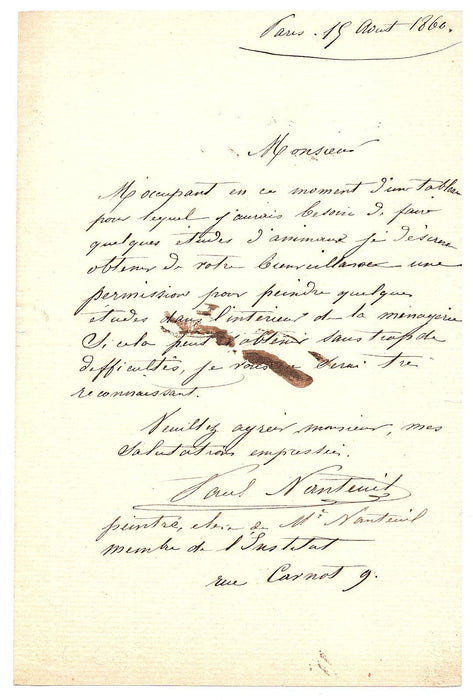 Paris. 15 Aout 1860.
Monsieur
M'occupant en ce moment d'un tableau
pour lequel j'aurais besoin de faire
quelques études d'animaux je désirerais
obtenir de votre bienveillance une
permission pour peindre quelques
études dans l'intérieur de la menagerie
Si cela peut s'obtenir sans trop de
difficultés, je vous serai très
reconnaissant.
Veuillez agréer monsieur, mes
salutations empressées.
Paul Nanteuil
peintre, eleve de Mr Nanteuil
membre de l'Institut
rue Carnot 9.